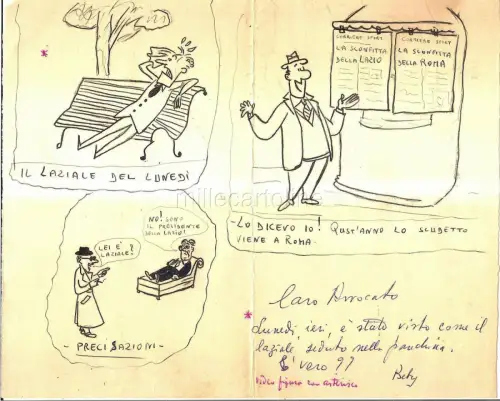 IL LAZIALE DEL LUNEDÌ
CORRIERE SPORT
LA SCONFITTA
DELLA LAZIO
CORRIERE SPORT
LA SCONFITTA
DELLA ROMA
-LO DICEVO IO! QUEST'ANNO LO SCUDETTO
VIENE A ROMA-
LEI E'
LAZIALE?
NO! SONO
IL PRESIDENTE
DELLA LAZIO!
-PRECISAZIONI-
Caro Avvocato
Lunedì, ieri, è stato visto come il
laziale, seduto nella panchina.
E' vero??
Bety
video figura con asterisco
millecartoline